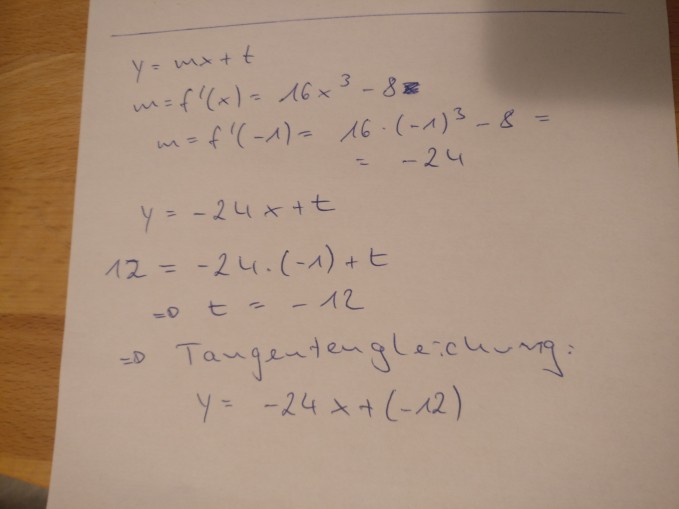 y = mx + t
m = f'(x) = 16x³ - 8
m = f'(-1) = 16 · (-1)³ - 8 =
= -24
y = -24x + t
12 = -24 · (-1) + t
⇒ t = -12
⇒ Tangentengleichung:
y = -24x + (-12)